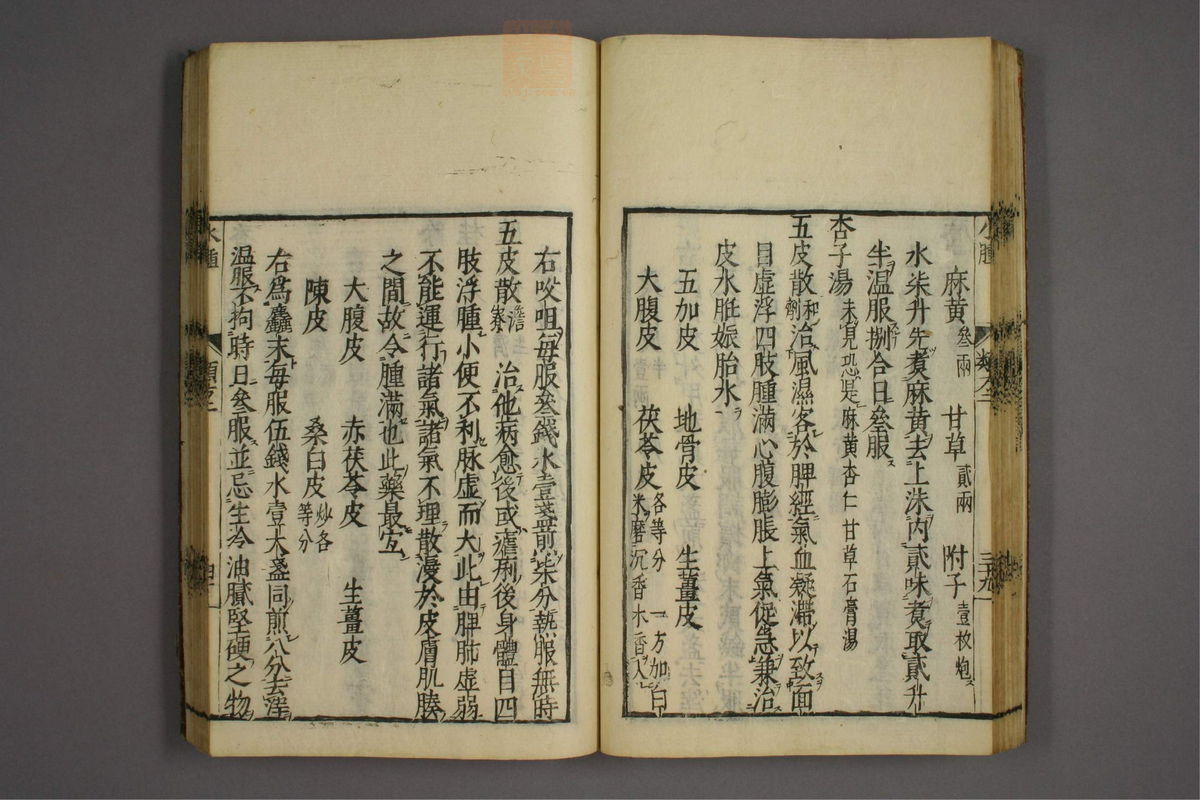 麻黄叄兩 甘草貳兩 附子壹枚炮
水柒升先煑麻黄去上沫内貳味煑取貳升
半温服捌合日叄服
杏子湯 未見恐是麻黄杏仁甘草石膏湯
五皮散和劑治風濕客於脾經氣血凝滯以致面
目虚浮四肢腫滿心腹膨脹上氣促急兼治
皮水胚娠胎水
五加皮 地骨皮 生薑皮
大腹皮 茯苓皮各等分 一方加白
米磨沉香木香入
右㕮咀每服叄錢水壹盞煎柒分熱服無時
五皮散澹寮 治他病愈後或瘧痢後身體目四
肢浮腫小便不利脉虚而大此由脾肺虚弱
不能運行諸氣諸氣不理散漫於皮膚肌腠
之間故令腫滿也此藥最宜
大腹皮 赤茯苓皮 生薑皮
陳皮 桑白皮炒各等分
右爲麤末每服伍錢水壹大盞同煎八分去滓
温服不拘時日叄服並忌生冷油膩堅硬之物
水腫